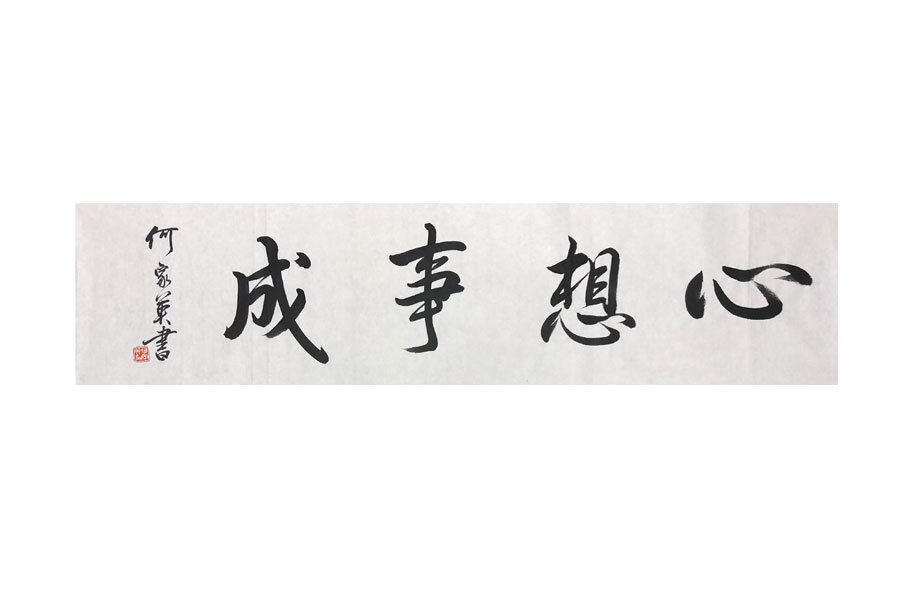 心想事成
何家英書